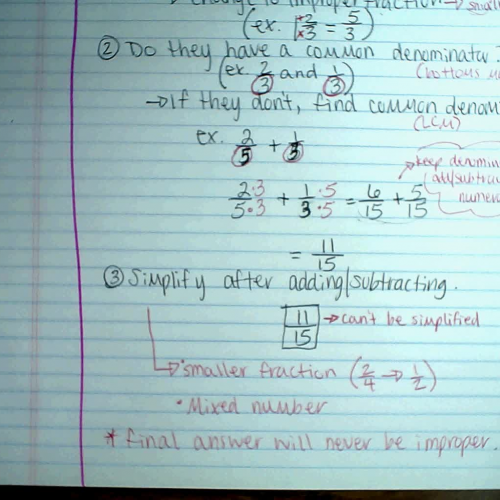 change to improper fraction → small
(ex. 1 2/3 = 5/3)
② Do they have a common denominator.
(ex. 2/3 and 1/3) (bottoms
→ If they don't, find common denom
(LCM)
ex. 2/5 + 1/3
→ keep denomin
add/subtrac
numera
2·3/5·3 + 1·5/3·5 = 6/15 + 5/15
= 11/15
③ Simplify after adding/subtracting.
11/15 → can't be simplified
→ • smaller fraction (2/4 → 1/2)
• Mixed number
* final answer will never be improper.